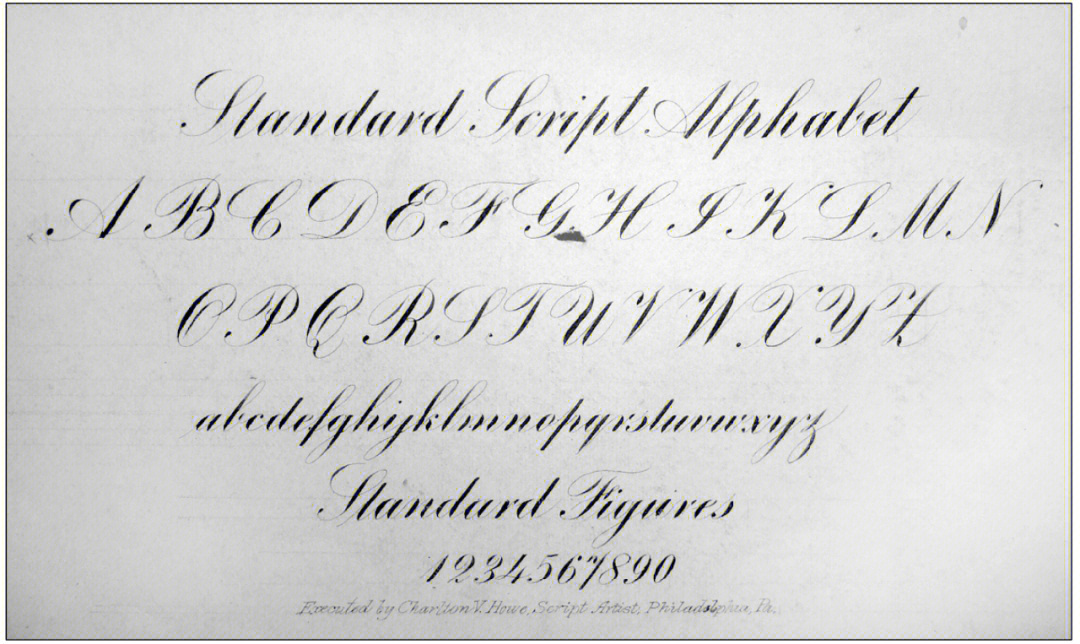 Standard Script Alphabet
A B C D E F G H I K L M N
O P Q R S T U V W X Y Z
abcdefghijklmnopqrstuvwxyz
Standard Figures
1234567890
Executed by Charlton V. Howe, Script Artist, Philadelphia, Pa.